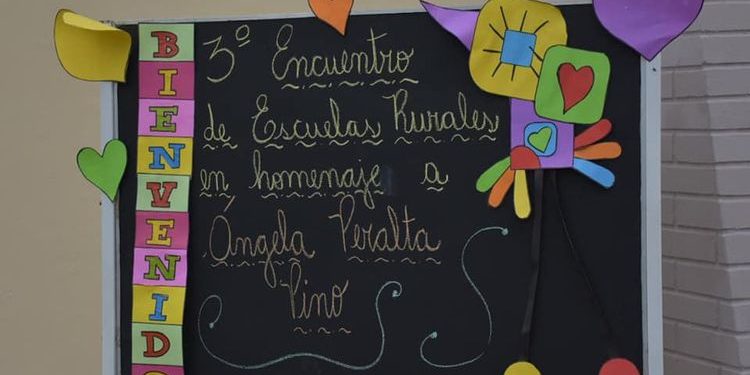 BIENVENIDO
3º Encuentro
de Escuelas Rurales
en homenaje a
Ángela Peralta
Pino